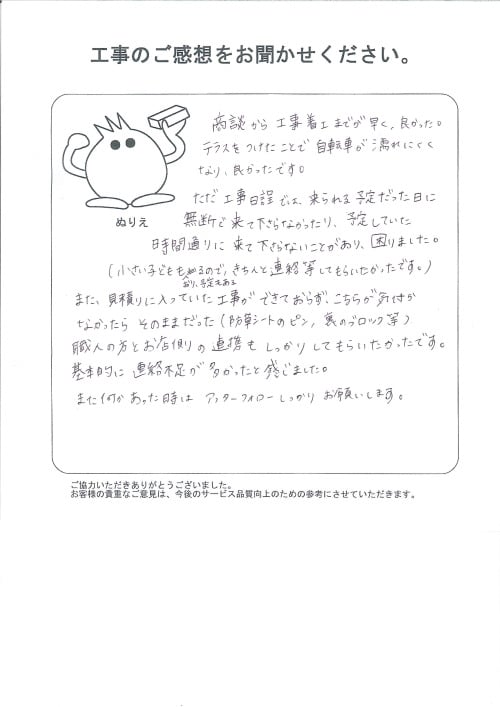 工事のご感想をお聞かせください。
商談から工事着工までが早く、良かった。
テラスをつけたことで自転車が濡れにくく
なり、良かったです。
ぬりえ
ただ工事日程では、来られる予定だった日に
無断で来て下さらなかったり、予定していた
時間通りに来て下さらないことがあり、困りました。
(小さい子どももいるので、きちんと連絡等してもらいたかったです。)
おり、予定もある
また、見積りに入っていた工事ができておらず、こちらが気付か
なかったらそのままだった(防草シートのピン、裏のブロック等)
職人の方とお店側の連携もしっかりしてもらいたかったです。
基本的に連絡不足が多かったと感じました。
また何かあった時はアフターフォローしっかりお願いします。
ご協力いただきありがとうございました。
お客様の貴重なご意見は、今後のサービス品質向上のための参考にさせていただきます。